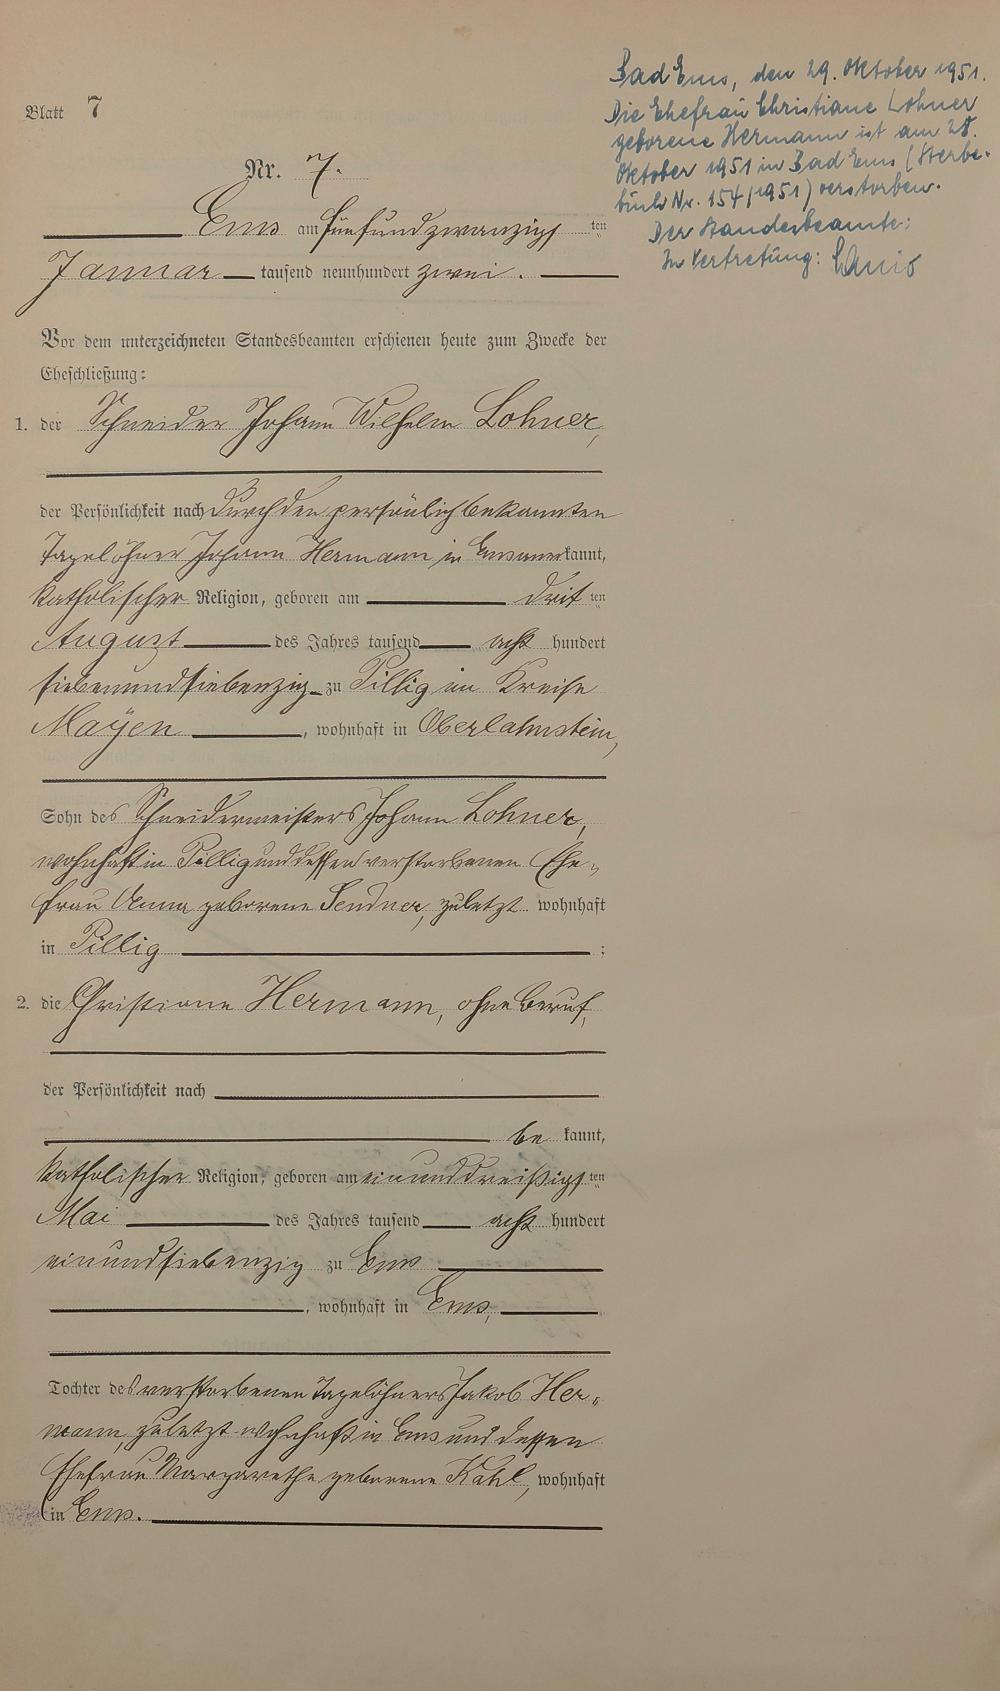 Blatt 7
Nr. 7.
Ems am fünfundzwanzigsten
Januar tausend neunhundert zwei.
Vor dem unterzeichneten Standesbeamten erschienen heute zum Zwecke der
Eheschließung:
1. der Schneider Johann Wilhelm Lohner,
der Persönlichkeit nach durch den persönlich bekannten
Tagelöhner Johann Hermann in Ems anerkannt,
katholischer Religion, geboren am dritten
August des Jahres tausend acht hundert
siebenundsiebenzig zu Pillig im Kreise
Mayen, wohnhaft in Oberlahnstein,
Sohn des Schneidermeisters Johann Lohner,
wohnhaft in Pillig und dessen verstorbenen Ehe-
frau Anna geborene Sendner, zuletzt wohnhaft
in Pillig ;
2. die Christiane Hermann, ohne Beruf,
der Persönlichkeit nach
be kannt,
katholischer Religion, geboren am einunddreißigsten
Mai des Jahres tausend acht hundert
einundsiebenzig zu Ems
, wohnhaft in Ems,
Tochter des verstorbenen Tagelöhners Jakob Her-
mann, zuletzt wohnhaft in Ems und dessen
Ehefrau Margarethe geborene Kahl, wohnhaft
in Ems.
Bad Ems, den 29. Oktober 1951.
Die Ehefrau Christiane Lohner
geborene Hermann ist am 28.
Oktober 1951 in Bad Ems (Sterbe-
buch Nr. 154/1951) verstorben.
Der Standesbeamte:
In Vertretung: